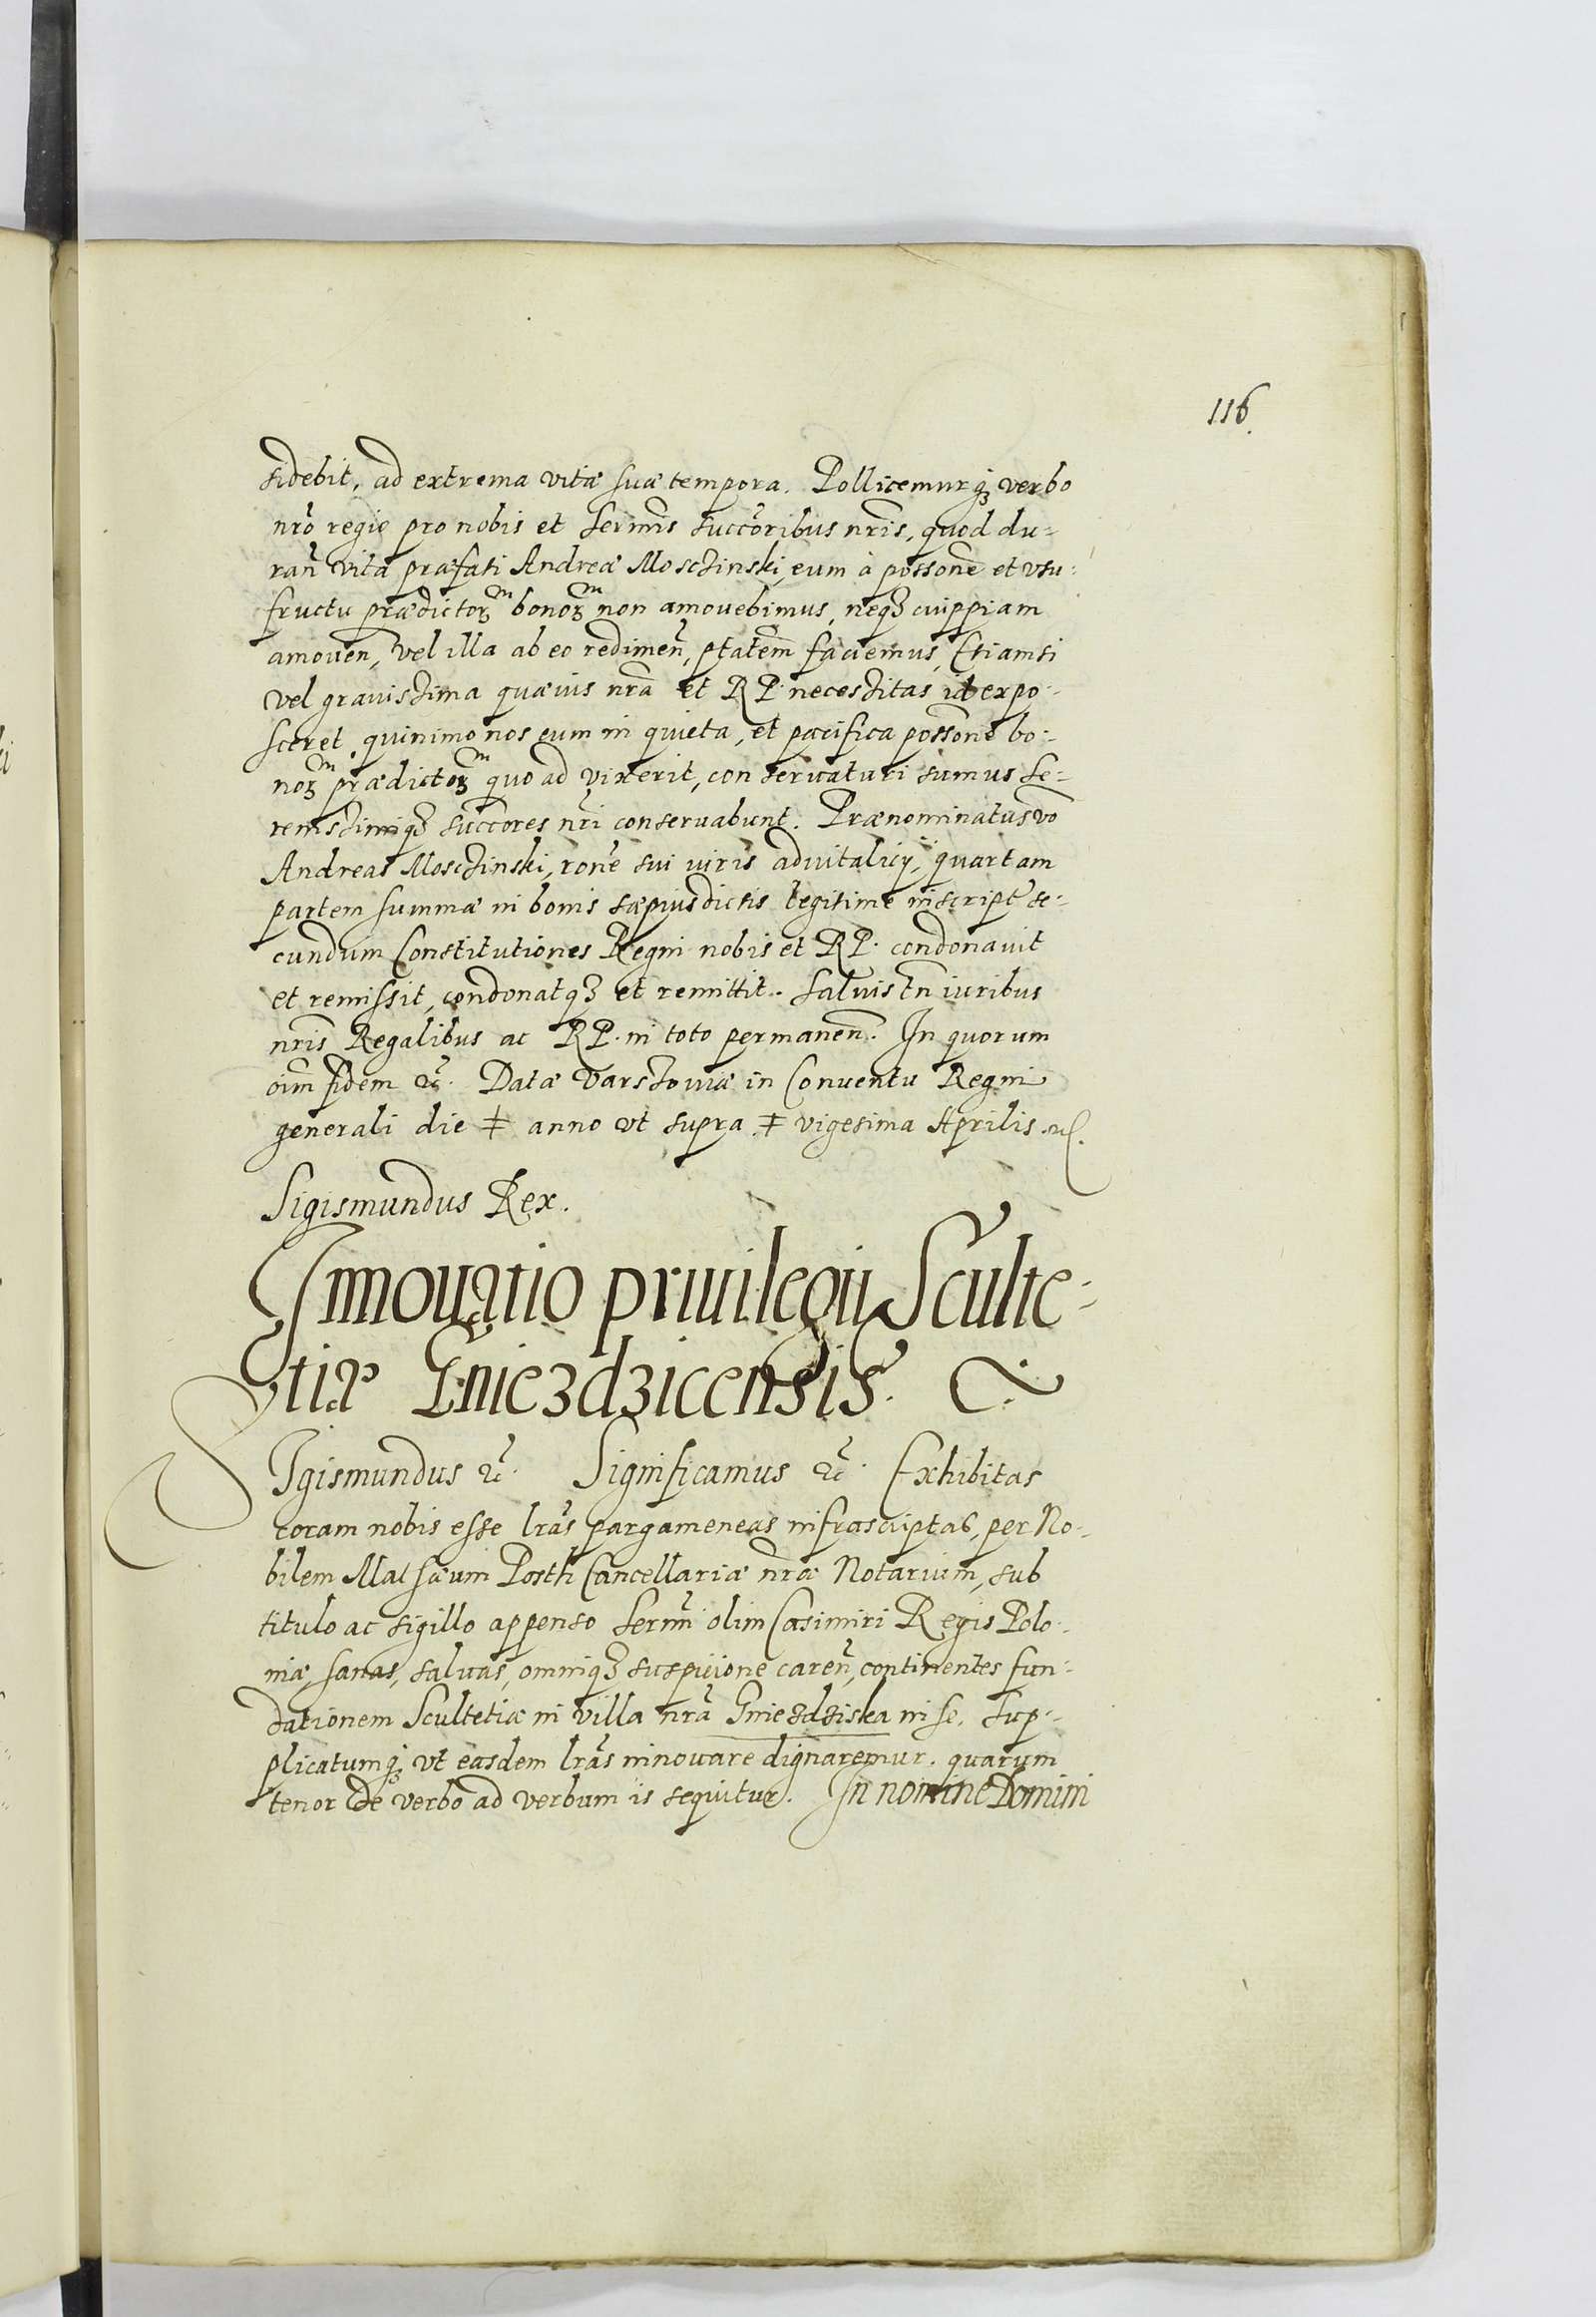 116.
sidebit, ad extrema vitæ suæ tempora. Pollicemurq3 verbo
nr̃o regio pro nobis et Sermis succ̃oribus nr̃is, quod du-
rañ vita præfati Andreæ Moschinski, eum à posson̄e et vsu-
fructu prædictorᵐ bonorᵐ non amouebimus, neq3 cuippiam
amoueñ, vel illa ab eo redimeñ, p̱tatem̄ faciemus, Etiamsi
vel grauissima quæuis nr̃a et RP. necessitas id expo-
sceret, quinimo nos eum in quieta, et pacifica posson̄e bo-
norᵐ prædictorᵐ quo ad vixerit, conseruaturi sumus Se-
renissimiq3 succ̃ores nr̃i conseruabunt. Prænominatus vo
Andreas Moschinski, ron̄e sui iuris aduitalicÿ, quartam
partem summæ in bonis sæpiusdictis legitime inscript̃ se-
cundum Constitutiones Regni nobis et RP. condonauit
et remissit, condonatq3 et remittit. Saluis tñ iuribus
nr̃is Regalibus ac RP. in toto permaneñ. In quorum
oīm fidem &c̃. Datæ Varssouiæ in Conuentu Regni
generali die ‡ anno vt supra ‡ vigesima Aprilis
Sigismundus Rex.
Innouatio priuilegii Sculte-
tiæ Gniezdzicensis.
SIgismundus &c̃. Significamus &c̃. Exhibitas
coram nobis esse lr̃as pargameneas infrascriptas, per No-
bilem Matthæum Posth Cancellariæ nr̃æ Notarium, sub
titulo ac sigillo appenso Sermi olim Casimiri Regis Polo-
niæ, sanas, saluas, omniq3 suspicione careñ, continentes fun-
dationem Scultetiæ in villa nr̃a Gniezdziska in se. Sup-
plicatumq3 vt easdem lr̃as innouare dignaremur. quarum
tenor de verbo ad verbum is sequitur. In nomine Domini